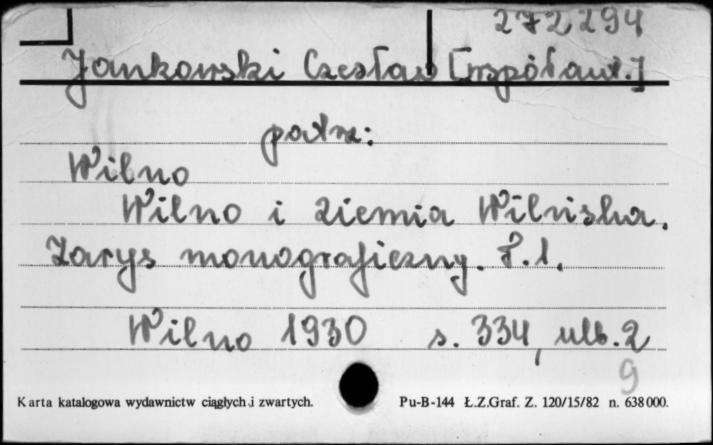 272294
Jankowski Czesław [współaut.]
patrz:
Wilno
Wilno i ziemia Wileńska.
Zarys monograficzny. T.1.
Wilno 1930 s. 334, ulb. 2
9
Karta katalogowa wydawnictw ciągłych i zwartych. Pu-B-144 Ł.Z.Graf. Z. 120/15/82 n. 638000.